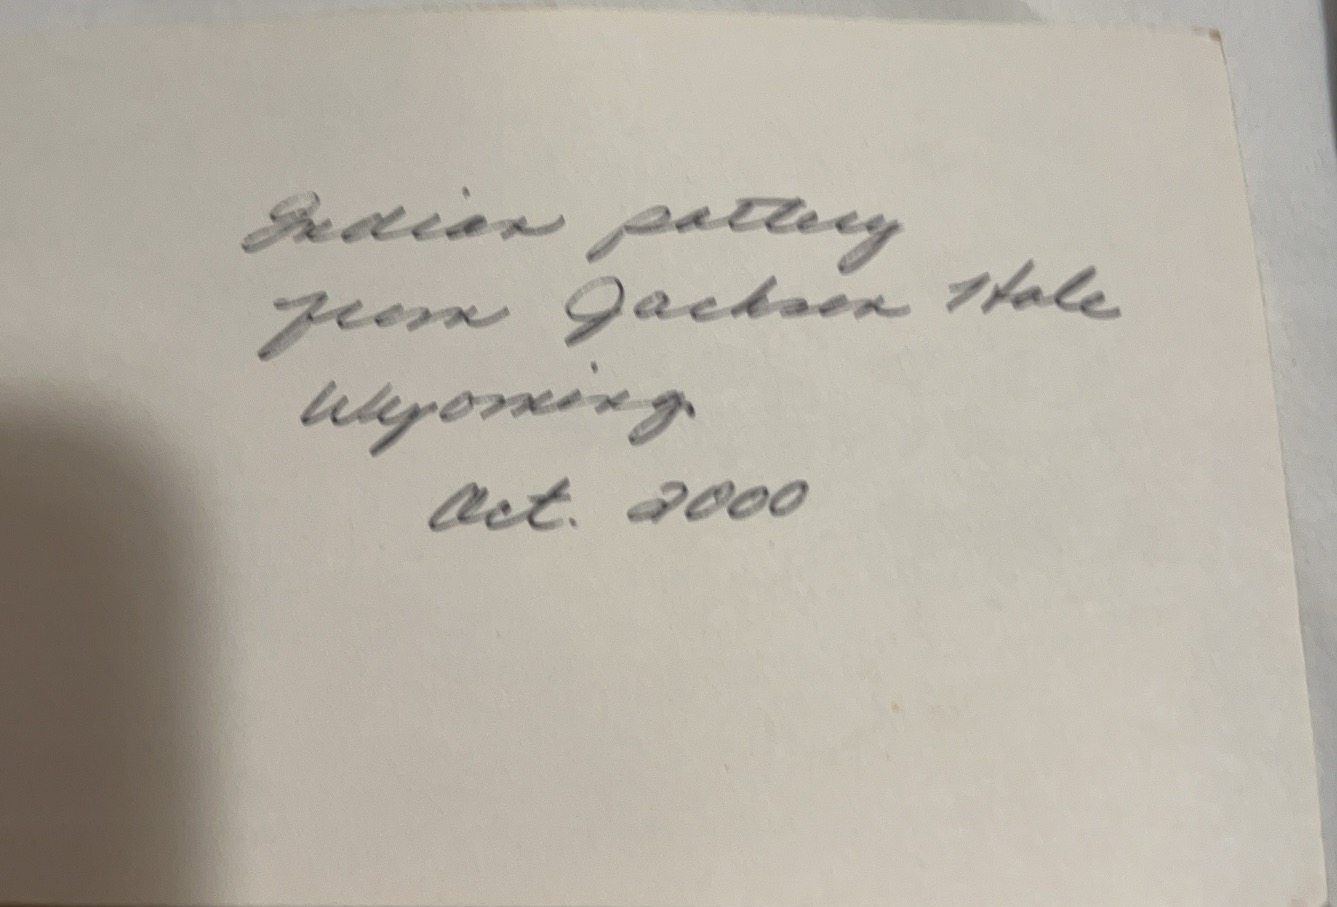 Indian pottery
from Jackson Hole
Wyoming.
Oct. 2000